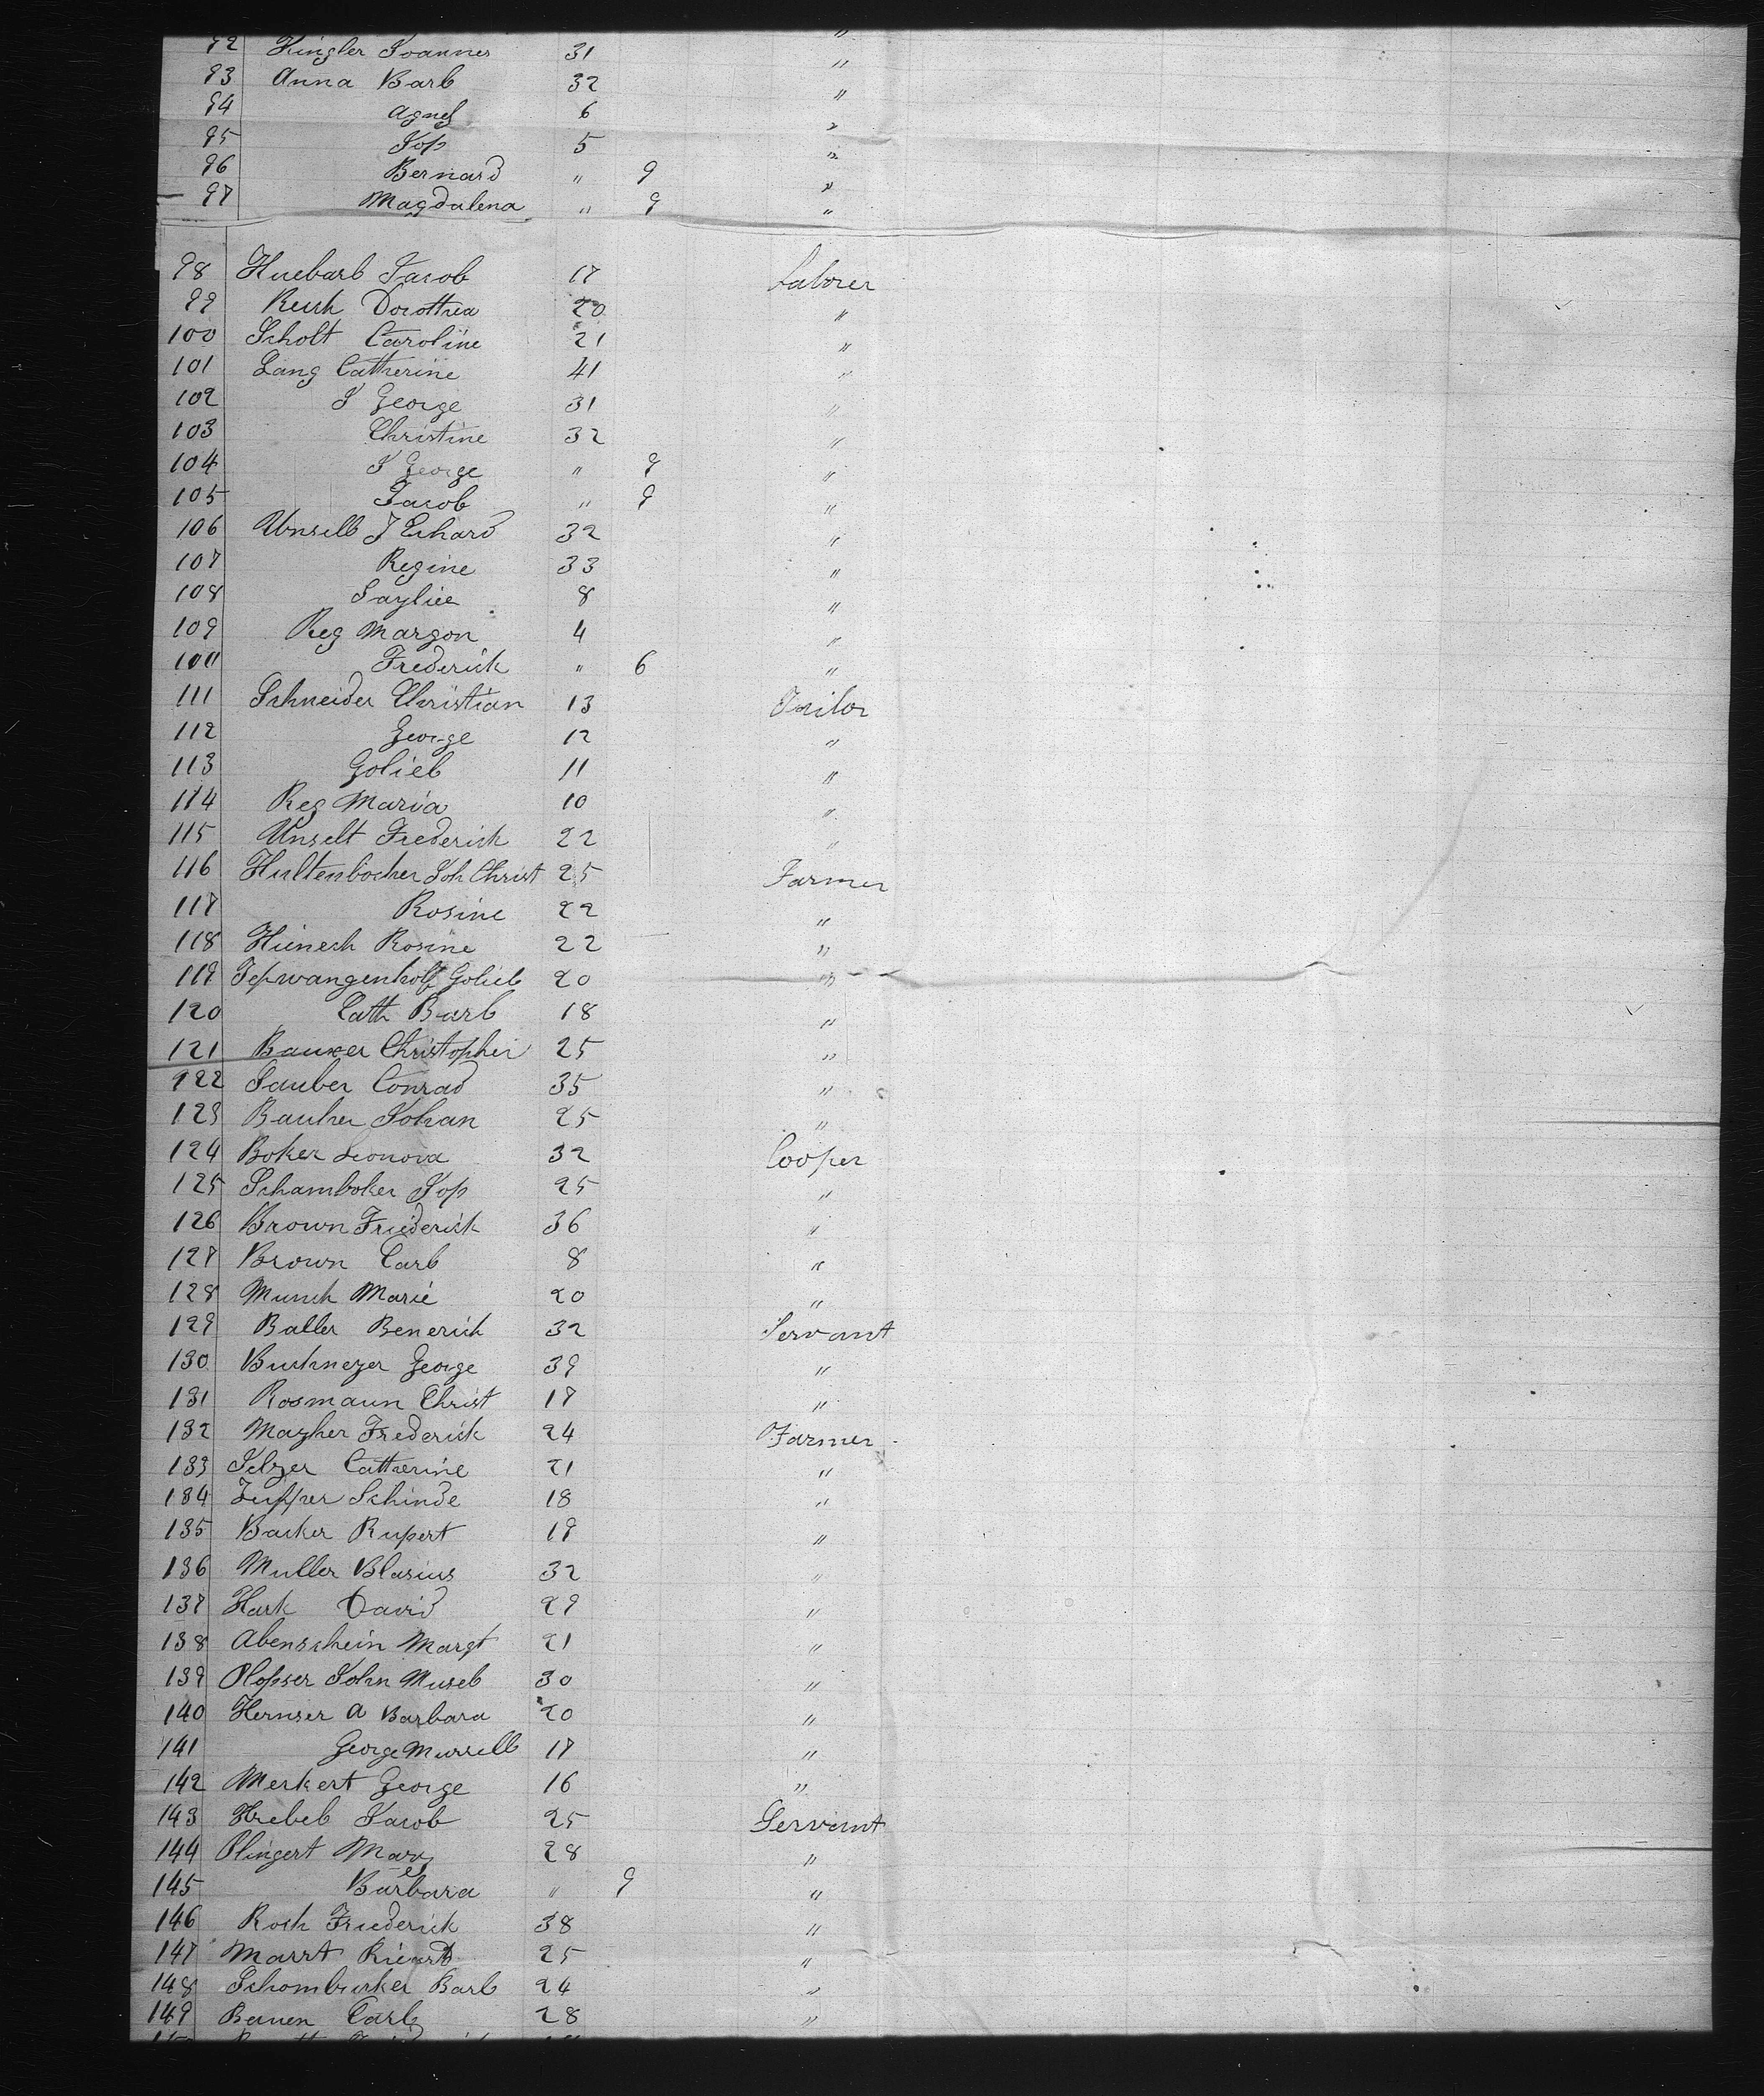 92 Kingler Joannes 31 "
93 Anna Barb 32 "
94 Agnes 6 "
95 Jos 5 "
96 Bernard " 9 "
97 Magdalena " 9 "
98 Huebarb Jacob 17 Laborer
99 Reish Dorothea 20 "
100 Scholt Caroline 21 "
101 Lang Catherine 41 "
102 J George 31 "
103 Christine 32 "
104 J George " 9 "
105 Jacob " 9 "
106 Unsell J Erhard 32 "
107 Regine 33 "
108 8 "
109 Reg Margon 4 "
Frederick " 6 "
111 Schneider Christian 13 Tailor
112 George 12 "
113 Golieb 11 "
114 Reg Maria 10 "
115 Unselt Frederick 22 "
116 Hultenbocher Joh Christ 25 Farmer
117 Rosine 22 "
118 Hienech Rosine 22 "
119 Golieb 20 "
120 Cath Barb 18 "
121 Bauxer Christopher 25 "
122 Sauber Conrad 35 "
123 Bauher Johan 25 "
124 Boker Leonora 32 Cooper
125 Schamboker Jos 25 "
126 Brown Friederick 36 "
127 Brown Carl 8 "
128 Munch Marie 20 "
129 Baller Benerich 32 Servant
130 Buchmeyer George 39 "
131 Rosmann Christ 17 "
132 Mayher Frederick 24 Farmer
133 Selzer Catherine 21 "
134 Zupper Schinde 18 "
135 Backer Rupert 19 "
136 Muller Blasius 32 "
137 Hark David 29 "
138 Abenschein Margt 21 "
139 Plopser John Museb 30 "
140 Hernser A Barbara 20 "
141 George Murrell 17 "
142 Merkert George 16 "
143 Hrebeb Jacob 25 Servant
144 Plingert Mary 28 "
145 Barbara " 9 "
146 Roch Friederick 38 "
147 Marrt 25 "
148 Schomburker Barb 24 "
149 Bernen Carl 28 "